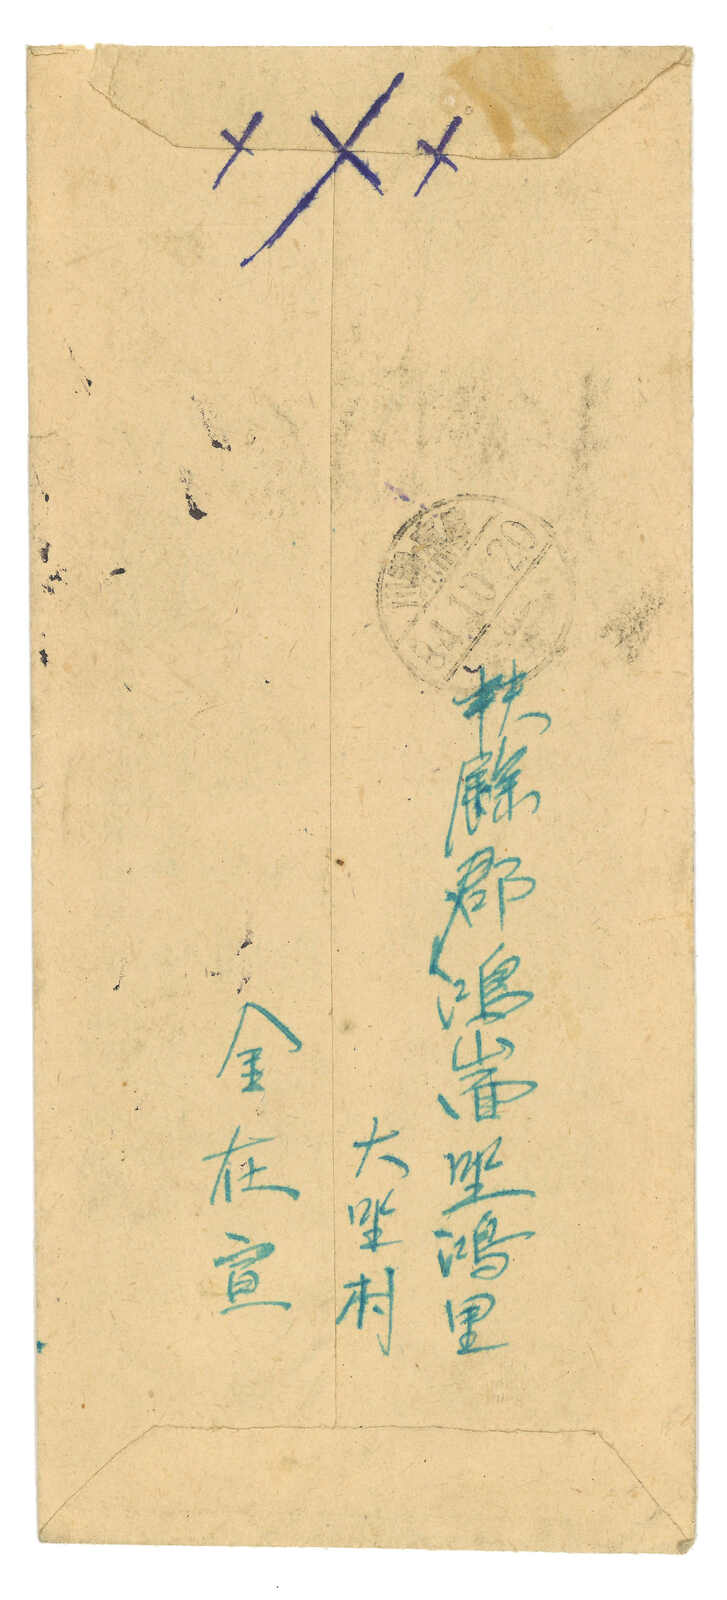 扶餘郡鴻山面坐鴻里
大坐村
金在宣
84.10.20